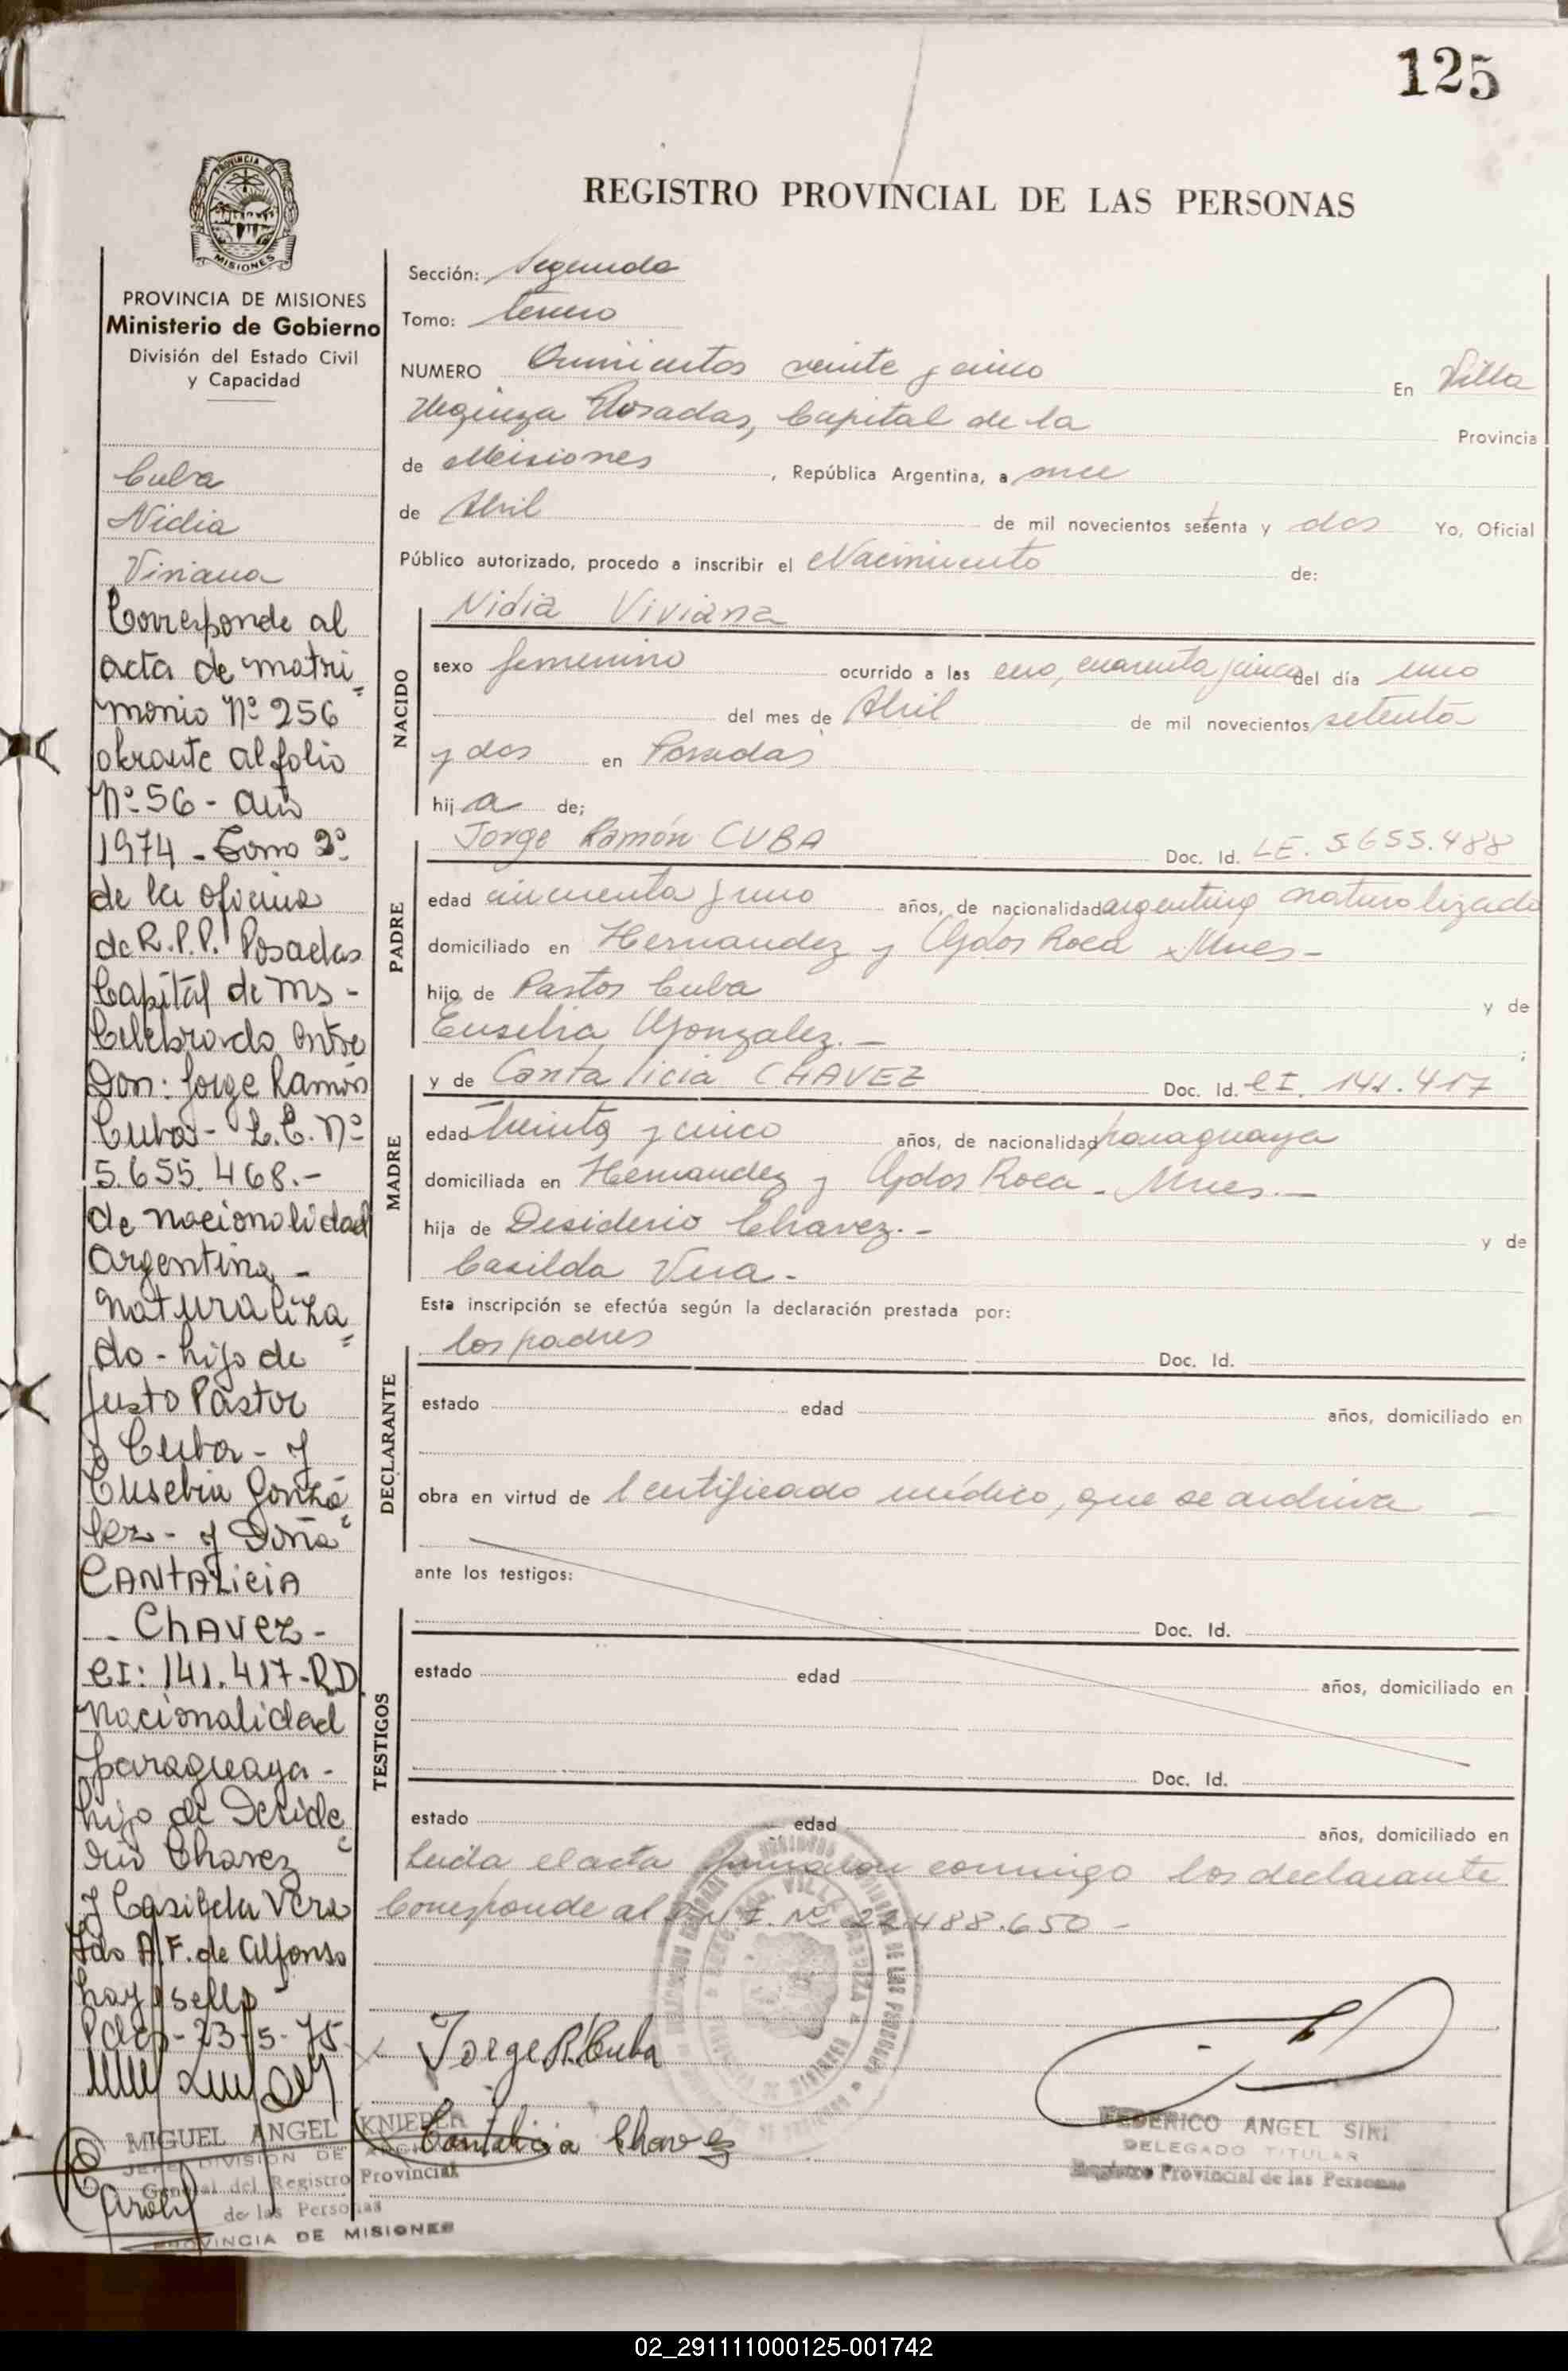 125
REGISTRO PROVINCIAL DE LAS PERSONAS
PROVINCIA
MISIONES
PROVINCIA DE MISIONES
Ministerio de Gobierno
División del Estado Civil
y Capacidad
Cuba
Nidia
Viviana
Corresponde al
acta de matri
monio Nº 256
obrante al folio
Nº 56 - año
1974 - Tomo 2º
de la oficina
de R.P.P. Posadas
Capital de Ms -
Celebrado entre
Don: Jorge Ramón
Cuba - L.E. Nº
5.655.468.-
de nacionalidad
argentina -
naturaliza
do - hijo de
Justo Pastor
Cuba - y
Eusebia Gonzá
lez - y Doña
CANTALICIA
- ChAVEZ -
CI: 141.417-RD
nacionalidad
paraguaya -
hijo de Deside
rio Chavez
y Casilda Vera
Fdo A.F. de Alfonso
hay sello
Pdas - 23-5-75
MIGUEL ANGEL KNIEPER
JEFE DIVISION DE
General del Registro Provincial
de las Personas
PROVINCIA DE MISIONES
Sección: Segunda
Tomo: tercero
NUMERO Quinientos veinte y cinco En Villa
Urquiza Posadas, Capital de la Provincia
de Misiones, República Argentina, a once
de Abril de mil novecientos setenta y dos Yo, Oficial
Público autorizado, procedo a inscribir el Nacimiento de:
NACIDO
Nidia Viviana
sexo femenino ocurrido a las cero, cuarenta y cinco del día uno
del mes de Abril de mil novecientos setenta
y dos en Posadas
hija de;
PADRE
Jorge Ramón CUBA Doc. Id. LE. 5.655.488
edad cincuenta y uno años, de nacionalidad argentina naturalizado
domiciliado en Hernandez y Gdor Roca Mnes-
hijo de Pastor Cuba y de
Eusebia Gonzalez.- ;
MADRE
y de Cantalicia CHAVEZ Doc. Id. CI. 141.417
edad treinta y cinco años, de nacionalidad paraguaya
domiciliada en Hernandez y Gdor Roca - Mnes.-
hija de Desiderio Chavez.- y de
Casilda Vera-
Esta inscripción se efectúa según la declaración prestada por:
DECLARANTE
los padres Doc. Id.
estado edad años, domiciliado en
obra en virtud de Certificado médico, que se archiva -
ante los testigos:
TESTIGOS
Doc. Id.
estado edad años, domiciliado en
Doc. Id.
estado edad años, domiciliado en
Leida el acta firmaron conmigo los declarante
Corresponde al D.N.I. Nº 22.488.650 -
Jorge R. Cuba
Cantalicia Chavez
FEDERICO ANGEL SIRI
DELEGADO TITULAR
Registro Provincial de las Personas
02_291111000125-001742